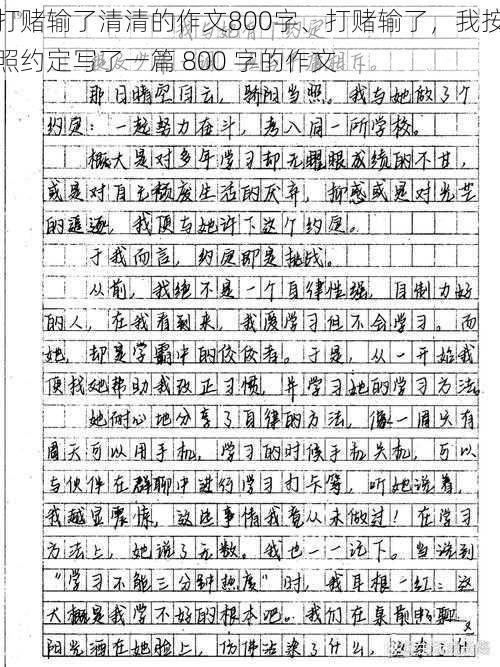 打赌输了清清的作文800字、打赌输了，我按
照约定写了一篇 800 字的作文
那日晴空白云，骄阳当照。我与她做了个
约定：一起努力奋斗，考入同一所学校。
概大是对多年学习却无耀眼成绩的不甘，
或是对自己颓废生活的厌弃，抑或是对光芒
的追逐，我便与她许下这个约定。
于我而言，约定即是挑战。
从前，我绝不是一个自律性强，自制力好
的人，在我看到来，我爱学习但不会学习。而
她，却是学霸中的佼佼者。于是，从一开始我
便找她帮助我改正习惯，并学习她的学习方法。
她耐心地分享了自律的方法，像一周只有
周天可以用手机，学习的时候手机关机，可以
与伙伴在群聊中进行学习打卡等，听她说着，
我越显震惊，这些事情我竟从未做过！在学习
方法上，她说了无数。我也一一记下。当说到
“学习不能三分钟热度”时，我耳根一红：这
大概是我学不好的根本吧。我们在桌前
阳光洒在她脸上，